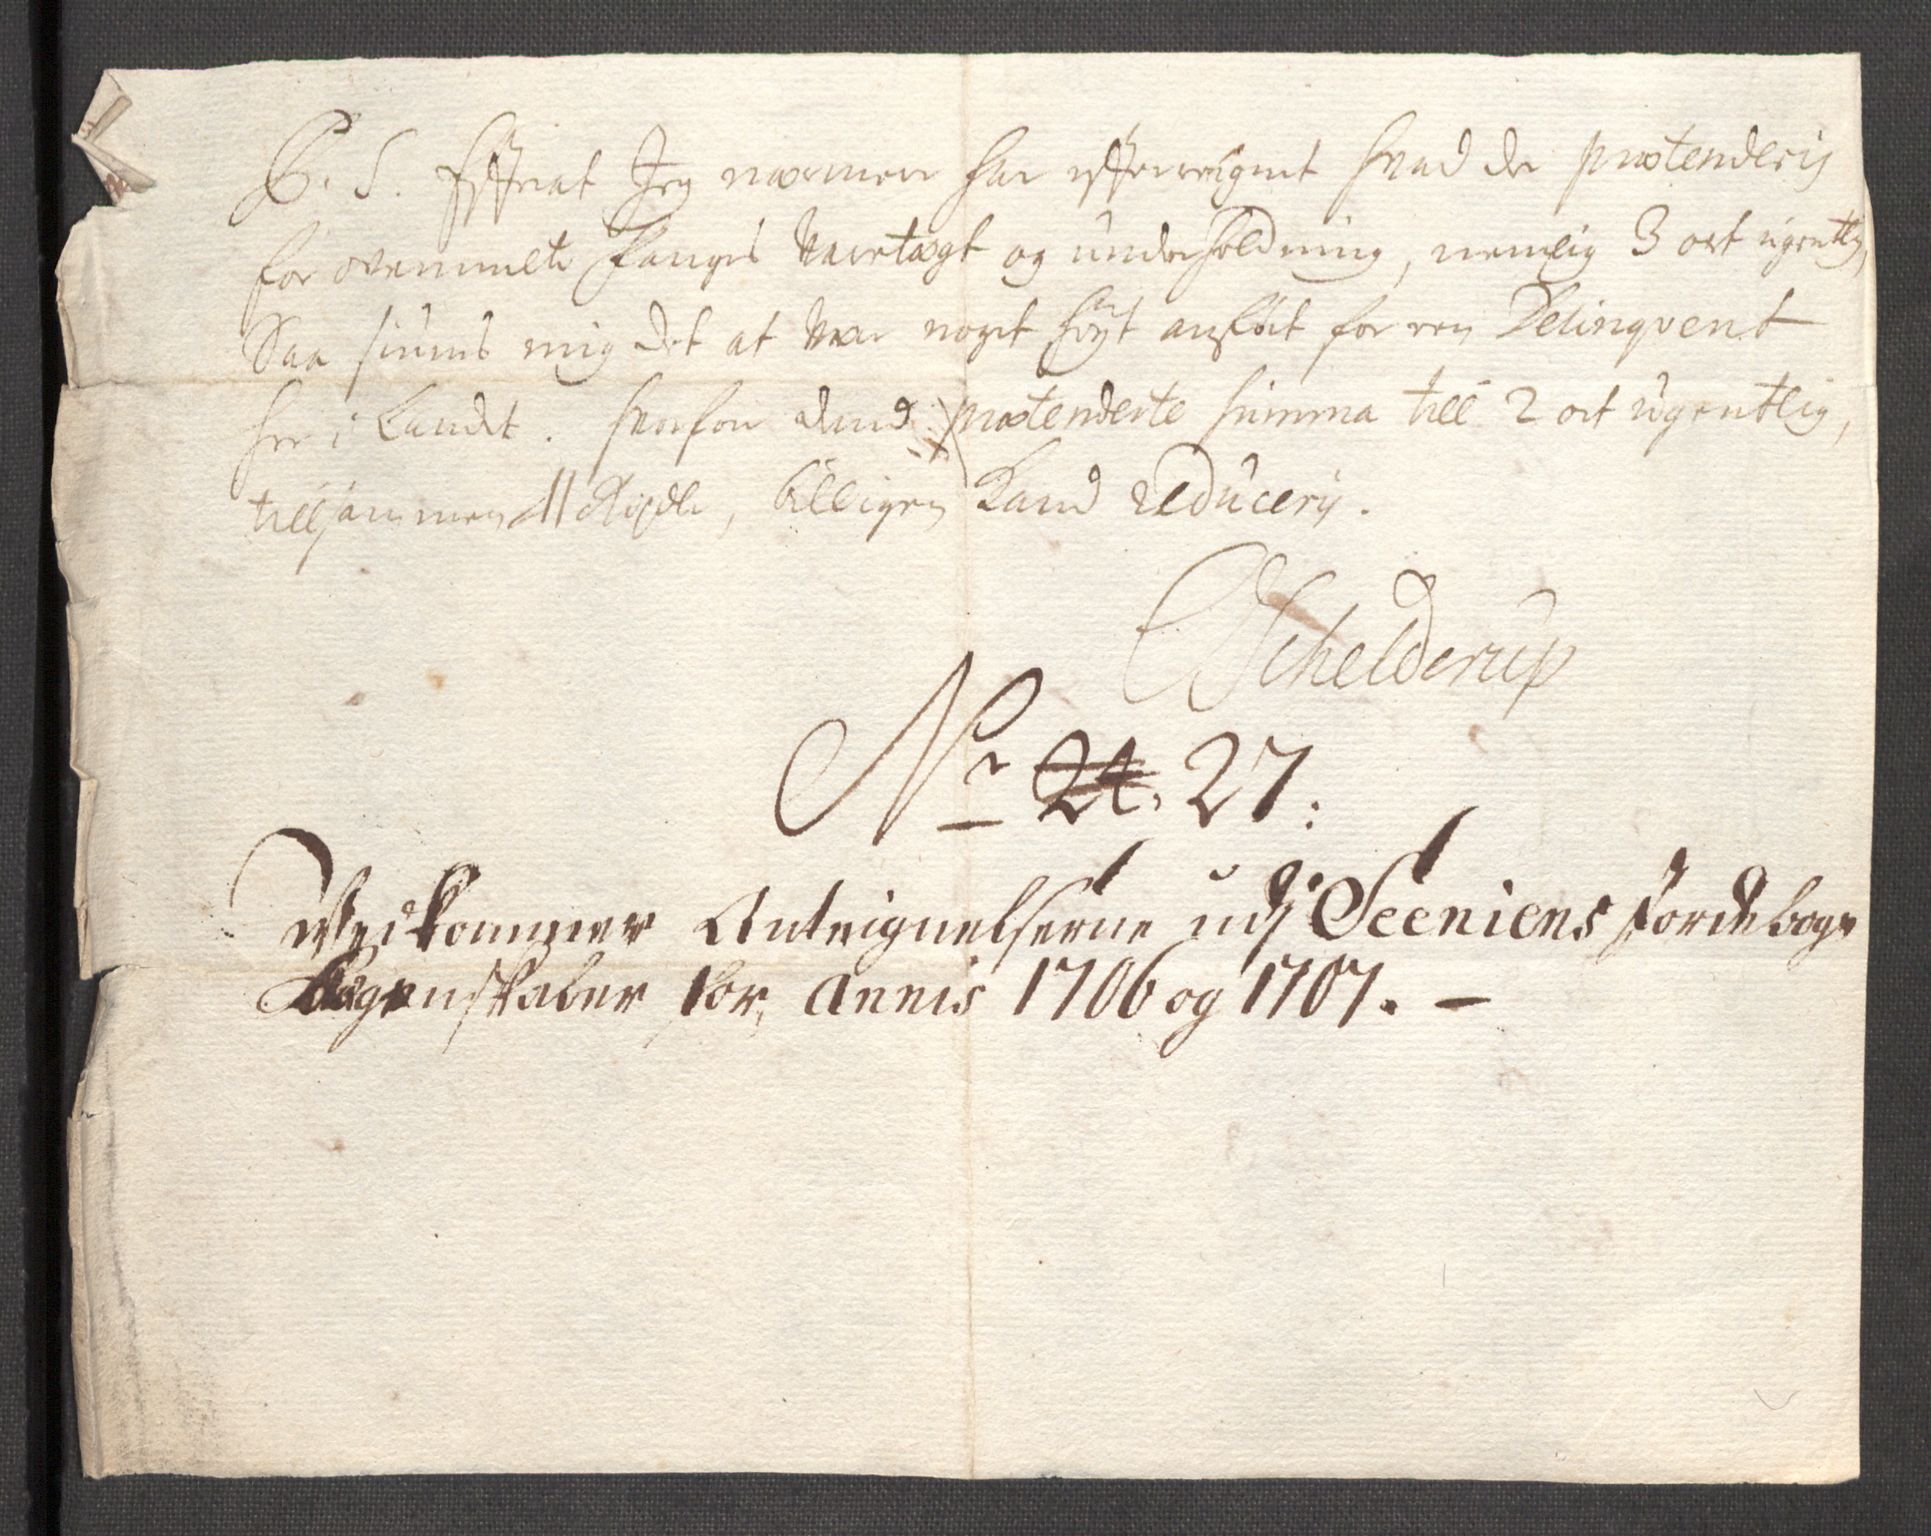 P. S. Efterat Jeg nærmere har efterreignet hvad der prætenderis
for ovenmelte Fanges Varetægt og underholdning, nemlig 3 ort ugentlig,
Saa siunes mig det at Vær noget høyt anført for een Delinqvent
her i Landet. hvorfor dend prætenderte summa till 2 ort ugentlig,
tillsammen 11 Rixdlr, billigen Kand reduceris.
Schelderup
No 24. 27:
Vedkommer Anteignelserne udj Seeniens Jordebogs
Regenskaber for, Annis 1706 og 1707. -